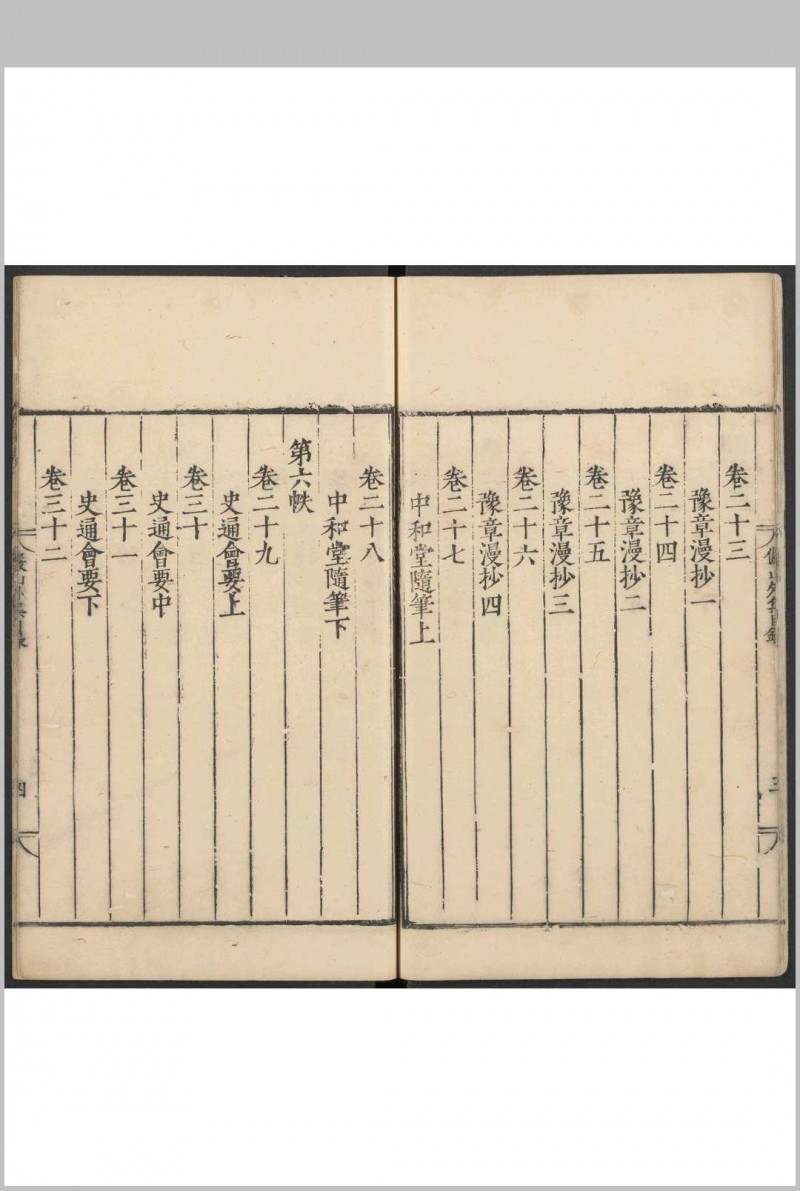 卷二十三
豫章漫抄一
卷二十四
豫章漫抄二
卷二十五
豫章漫抄三
卷二十六
豫章漫抄四
卷二十七
中和堂隨筆上
三
卷二十八
中和堂隨筆下
第六帙
卷二十九
史通會要上
卷三十
史通會要中
卷三十一
史通會要下
卷三十二
四